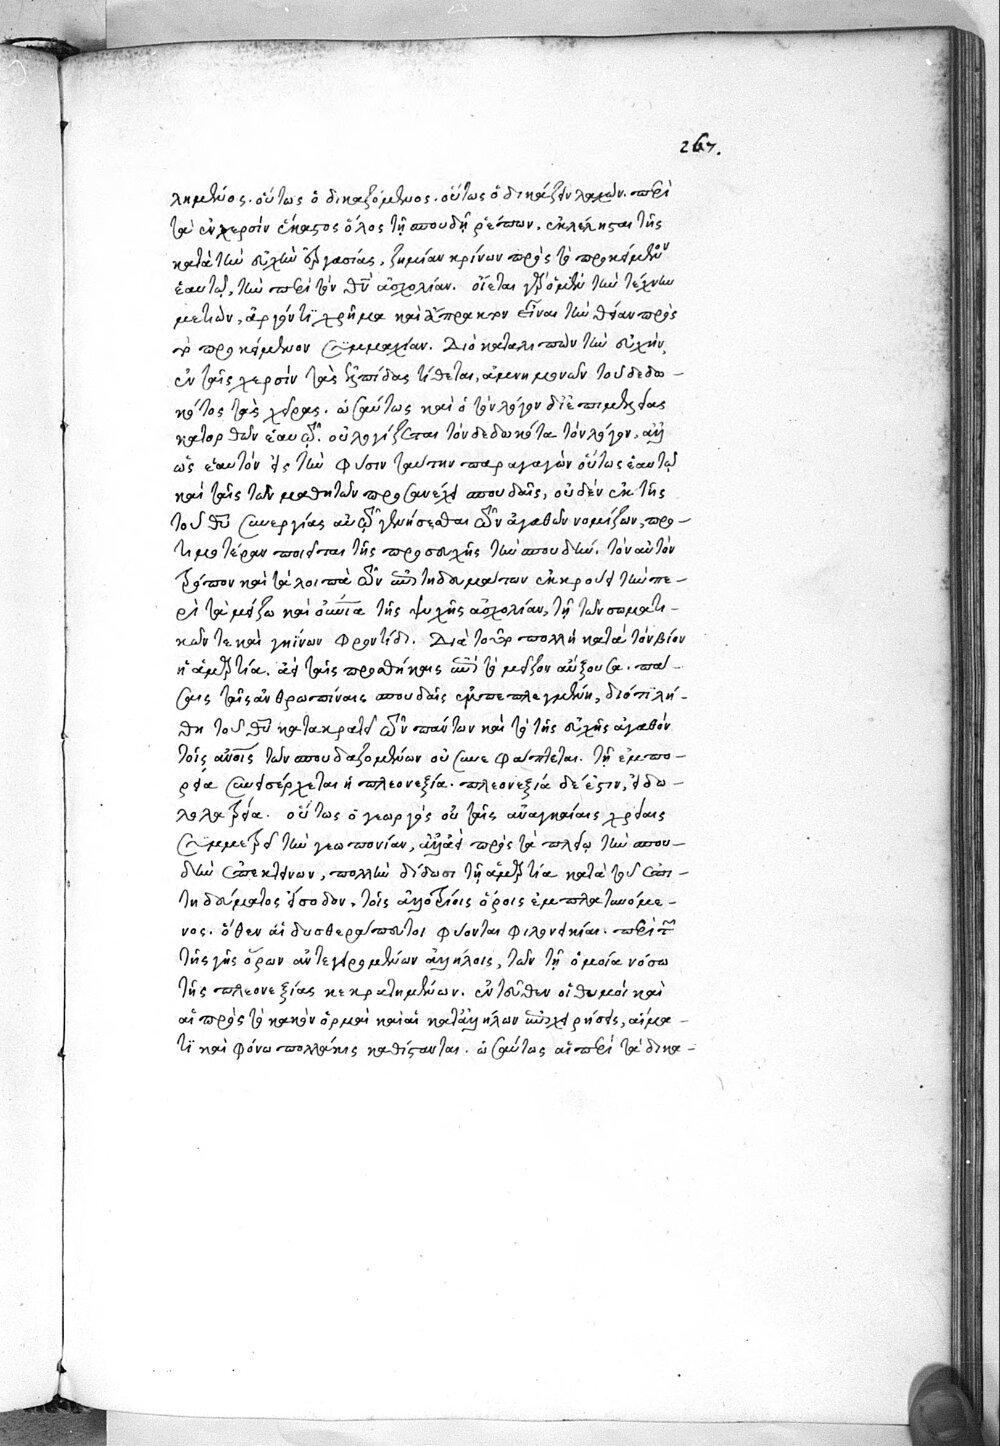 267.
λημένος. οὕτως ὁ δικαζόμενος. οὕτως ὁ δικάζειν λαχών. περὶ
τὰ ἐν χερσὶν ἕκαστος ὅλος τῇ σπουδῇ ῥέπων, ἐκλέλησται τῆς
κατὰ τὴν εὐχὴν ἐργασίας, ζημίαν κρίνων πρὸς τὸ προκείμενον
ἑαυτῷ, τὴν περὶ τὸν θν ἀσχολίαν. οἴεται γὰρ ὁ μὲν τὴν τέχνην
μετιών, ἀργόν τι χρῆμα καὶ ἄπρακτον εἶναι τὴν θείαν πρὸς
τὸ προκείμενον συμμαχίαν. Διὸ καταλιπὼν τὴν εὐχήν,
ἐν ταῖς χερσὶν τὰς ἐλπίδας τίθεται, ἀμνημονῶν τοῦ δεδω-
κότος τὰς χεῖρας. ὡσαύτως καὶ ὁ τὸν λόγον δι' ἐπιμελείας
κατορθῶν ἑαυτῷ. οὐ λογίζεται τὸν δεδωκότα τὸν λόγον, ἀλλ
ὡς ἑαυτὸν εἰς τὴν φύσιν ταύτην παραγαγὼν οὕτως ἑαυτῷ
καὶ ταῖς τῶν μαθητῶν προσανέχει σπουδαῖς, οὐδὲν ἐκ τῆς
τοῦ θυ συνεργίας αὐτῷ γενήσεσθαι τῶν ἀγαθῶν νομίζων, προ-
τιμοτέραν ποιεῖται τῆς προσευχῆς τὴν σπουδήν. τὸν αὐτὸν
τρόπον καὶ τὰ λοιπὰ τῶν ἐπιτηδευμάτων ἐκκρούει τὴν πε-
ρὶ τὰ μείζω καὶ οὐνια τῆς ψυχῆς ἀσχολίαν, τῇ τῶν σωματι-
κῶν τε καὶ γηΐνων φροντίδι. Διὰ τοῦτο πολλὴ κατὰ τὸν βίον
ἡ ἁμαρτία. ἀεὶ ταῖς προσθήκαις ἐπὶ τὸ μεῖζον αὔξουσα. πά-
σαις ταῖς ἀνθρωπίναις σπουδαῖς ἐμπεπλεγμένη, διότι λή-
θη τοῦ θυ κατακρατεῖ τῶν πάντων καὶ τὸ τῆς εὐχῆς ἀγαθὸν
τοῖς ἀνοις τῶν σπουδαζομένων οὐ συνεφάπτεται. τῇ ἐμπο-
ρείᾳ συνεισέρχεται ἡ πλεονεξία. πλεονεξία δέ ἐστιν, εἰδω-
λολατρεία. οὕτως ὁ γεωργὸς οὐ ταῖς ἀναγκαίαις χρείαις
συμμετρεῖ τὴν γεωπονίαν, ἀλλ' ἀεὶ πρὸς τὰ πλείω τὴν σπου-
δὴν ἐπεκτείνων, πολλὴν δίδωσι τῇ ἁμαρτίᾳ κατὰ τοῦ ἐπι-
τηδεύματος εἴσοδον, τοῖς ἀλλοτρίοις ὅροις ἐμπλατυνόμε-
νος. ὅθεν αἱ δυσθεράπευτοι φύονται φιλονεικίαι. περὶ τῶν
τῆς γῆς ὅρων ἀντεγειρομένων ἀλλήλοις, τῶν τῇ ὁμοίᾳ νόσῳ
τῆς πλεονεξίας κεκρατημένων. ἐντεῦθεν οἱ θυμοὶ καὶ
αἱ πρὸς τὸ κακὸν ὁρμαὶ καὶ αἱ κατ' ἀλλήλων ἐπιχειρήσεις, αἵμα-
τι καὶ φόνῳ πολλάκις καθίσανται. ὡσαύτως αἱ περὶ τὰ δικα-